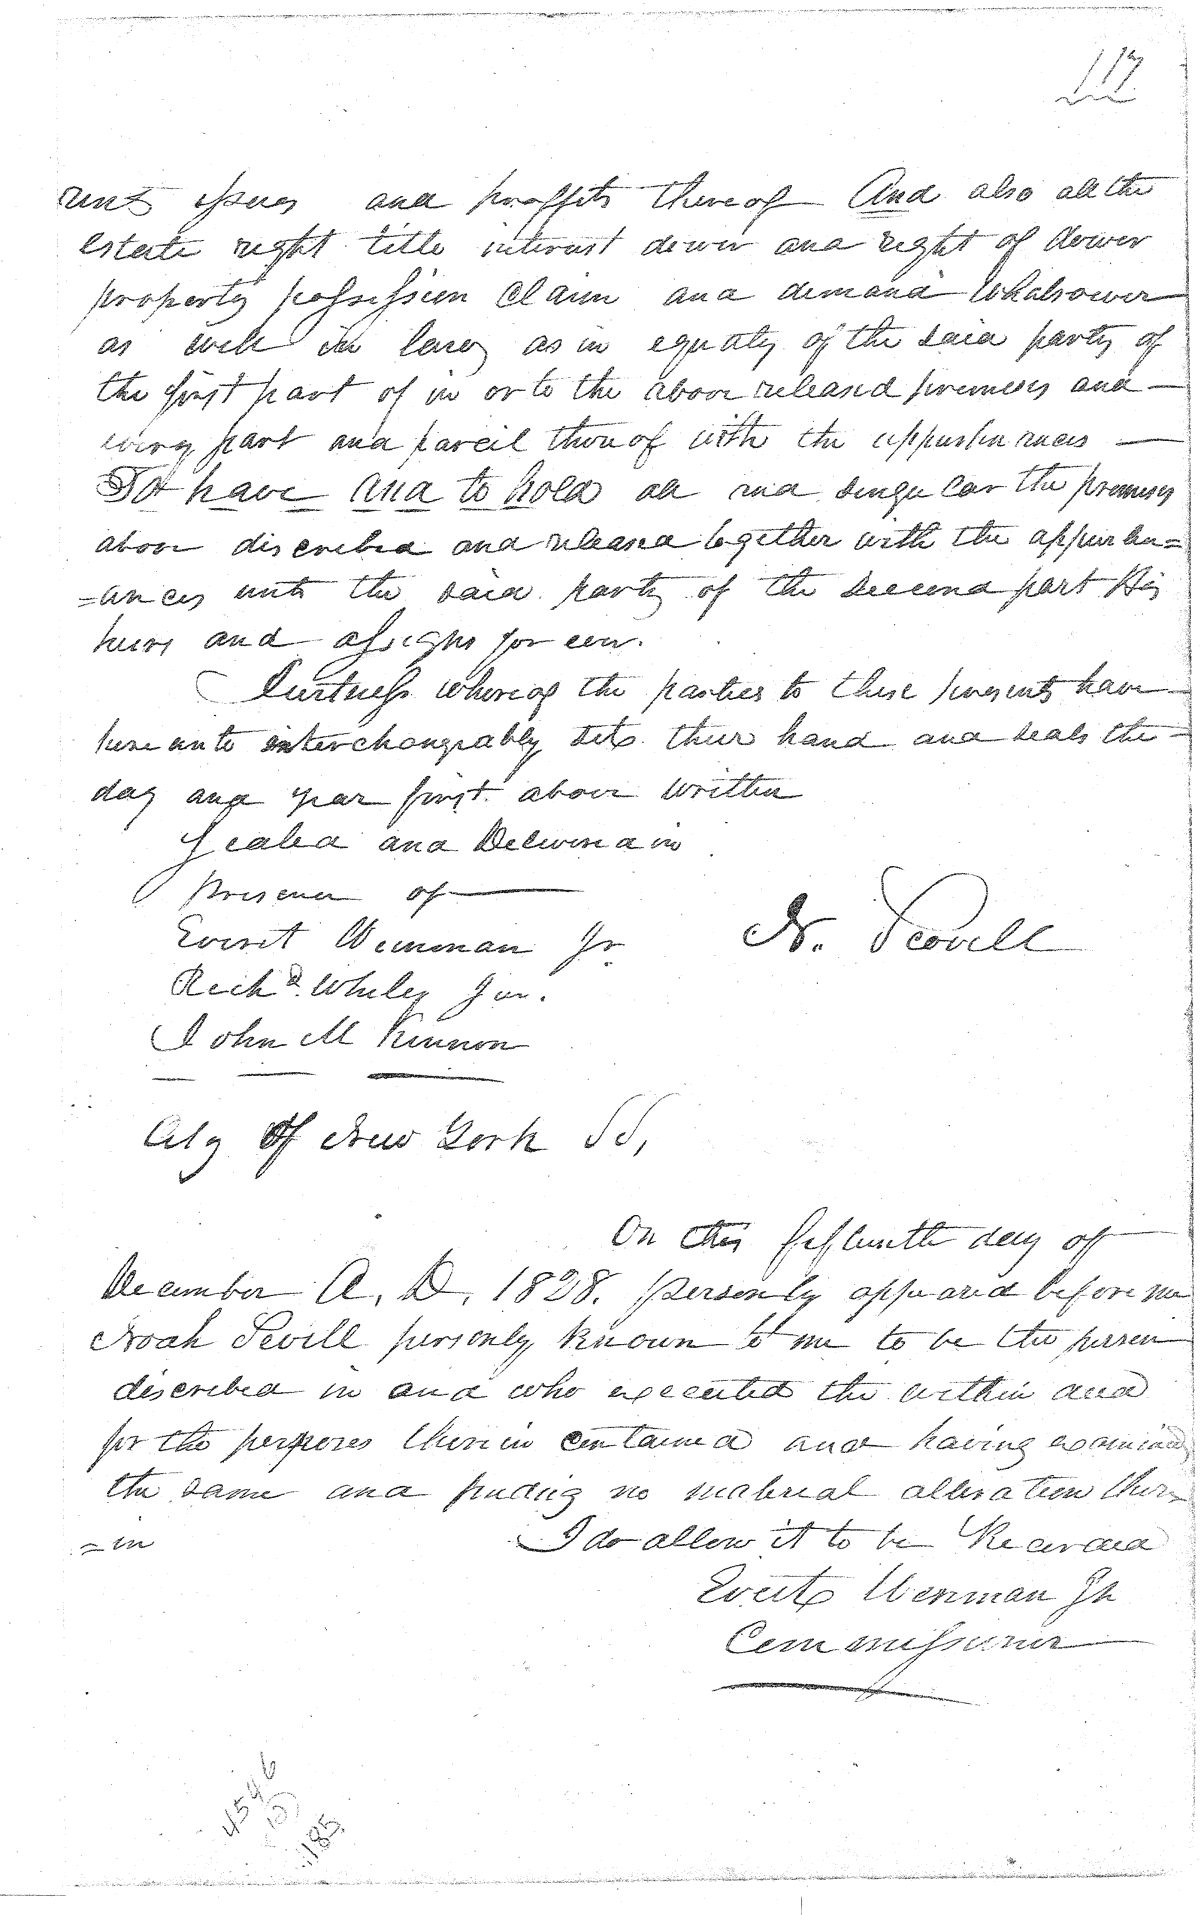 117
rents issues and proffits thereof And also all the
estate right title interest dower and right of dower
property possession claim and demand whatsoever
as well in law as in equaty of the said party of
the first part of in or to the above released premises and —
every part and parcil thereof with the appurtenances —
To have and to hold all and singular the premises
above discribed and released together with the appurten=
=ances unto the said party of the second part His
heirs and assigns for ever.
In witness whereof the parties to these presents have
hereunto interchangeably sets their hand and seals the
day and year first above written
Sealed and Delivered in
Presence of —
Everit Wenman Jr.
Richd. Whiley Jun.
John M Kinnon
N. Scovill
City Of New York SS,
On this fifteenth day of
December A, D, 1828. Personly appeared before me
Noah Scvill personly known to me to be the person
discribed in and who executed the within deed
for the perposes therein contained and having examined
the same and finding no material alteration there
=in I do allow it to be Recorded
Evert Wenman Jr
Commissioner
4546
185